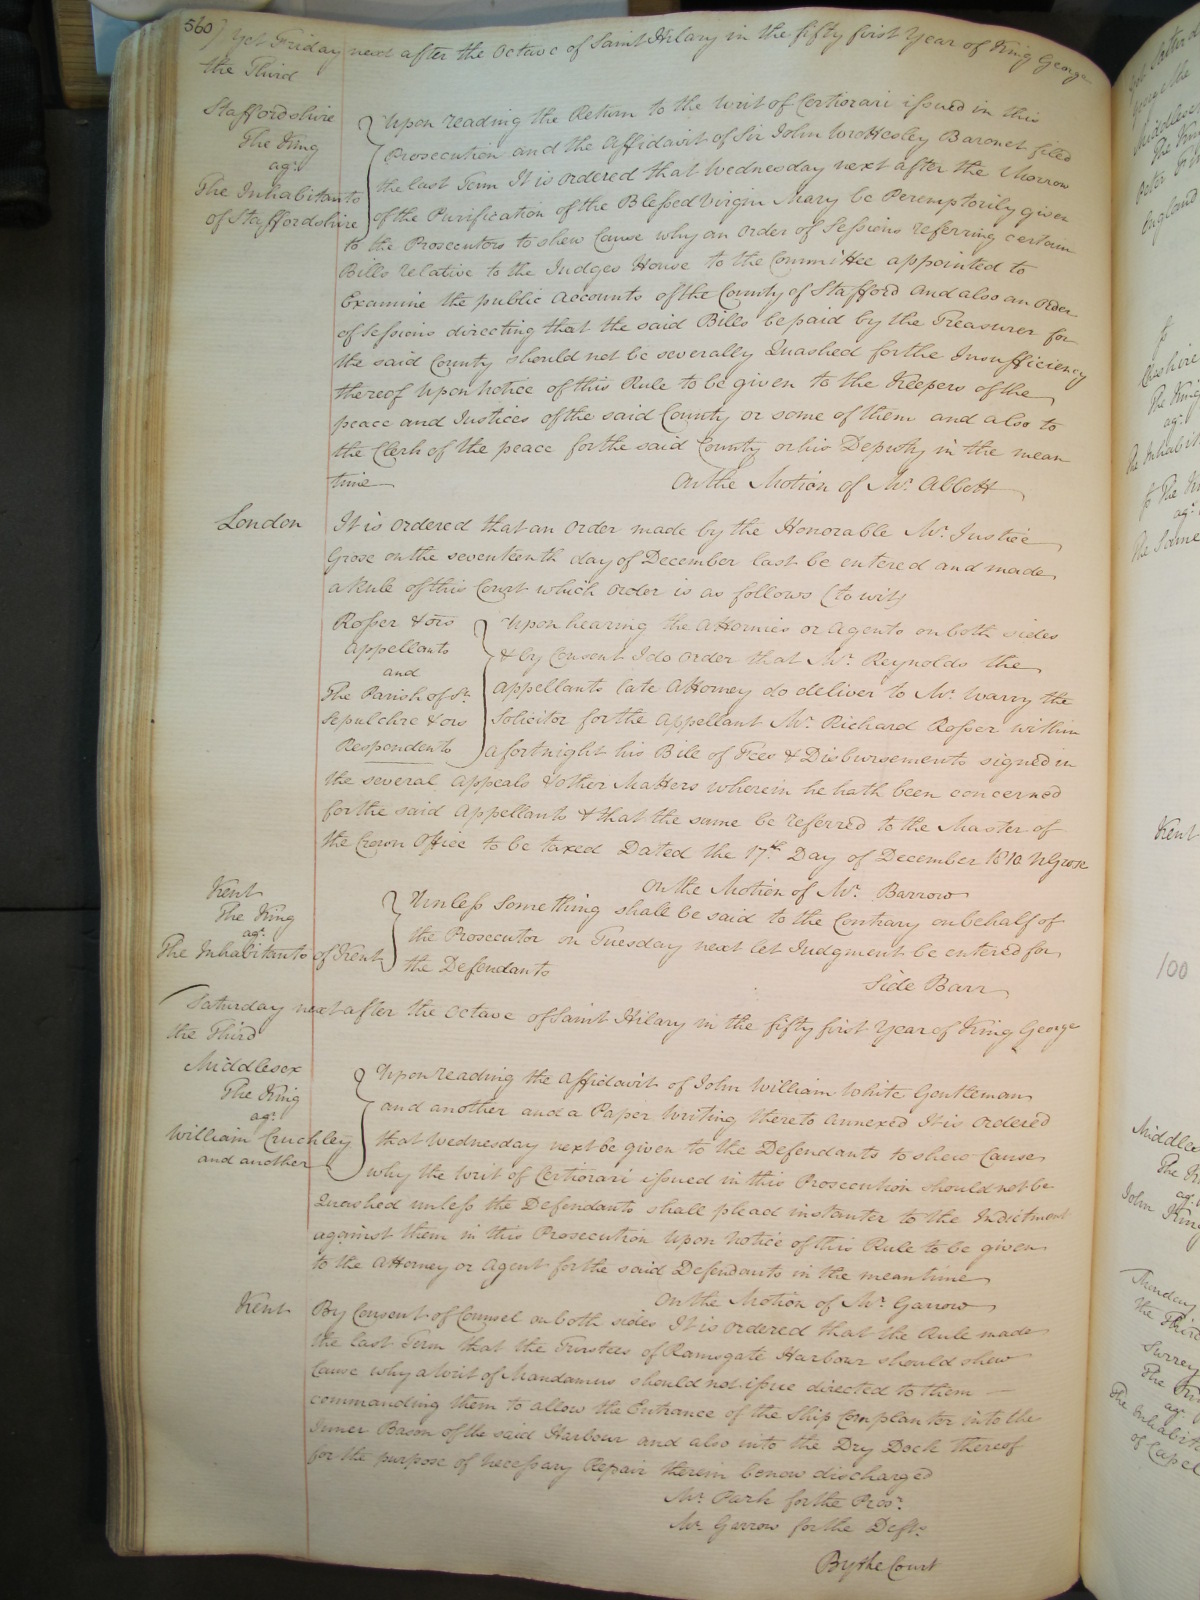 560) Yet Friday next after the Octave of Saint Hilary in the fifty first Year of King George
the Third
Staffordshire
The King
agt.
The Inhabitants
of Staffordshire
Upon reading the Return to the Writ of Certiorari issued in this
Prosecution and the Affidavit of Sir John Wrottesley Baronet filed
the last Term It is ordered that Wednesday next after the Morrow
of the Purification of the Blessed Virgin Mary be Peremptorily given
to the Prosecutors to shew Cause why an Order of Sessions referring certain
Bills relative to the Judges House to the Committee appointed to
Examine the public Accounts of the County of Stafford and also an Order
of Sessions directing that the said Bills be paid by the Treasurer for
the said County should not be severally Quashed for the Insufficiency
thereof Upon Notice of this Rule to be given to the Keepers of the
peace and Justices of the said County or some of them and also to
the Clerk of the peace for the said County or his Deputy in the mean
time
On the Motion of Mr. Abbott
London
It is ordered that an Order made by the Honorable Mr. Justice
Grose on the seventeenth day of December last be entered and made
a Rule of this Court which Order is as follows (to wit)
Rosser & ors
Appellants
and
The Parish of St.
Sepulchre & ors
Respondents
Upon hearing the Attornies or Agents on both sides
& by Consent I do order that Mr. Reynolds the
Appellants late Attorney do deliver to Mr. Warry the
Solicitor for the Appellant Mr. Richard Rosser within
a fortnight his Bill of Fees & Disbursements signed in
the several Appeals & other Matters wherein he hath been concerned
for the said Appellants & that the same be referred to the Master of
the Crown Office to be taxed Dated the 17th Day of December 1810 N Grose
On the Motion of Mr. Barrow
Kent
The King
agt.
The Inhabitants of Kent
Unless something shall be said to the Contrary on behalf of
the Prosecutor on Tuesday next let Judgment be entered for
the Defendants
Side Barr
Saturday next after the Octave of Saint Hilary in the fifty first Year of King George
the Third
Middlesex
The King
agt.
William Cruchley
and another
Upon reading the Affidavit of John William White Gentleman
and another and a Paper Writing thereto annexed It is ordered
that Wednesday next be given to the Defendants to shew Cause
why the Writ of Certiorari issued in this Prosecution should not be
Quashed unless the Defendants shall plead instanter to the Indictment
against them in this Prosecution Upon Notice of this Rule to be given
to the Attorney or Agent for the said Defendants in the mean time
On the Motion of Mr. Garrow
Kent
By Consent of Counsel on both sides It is ordered that the Rule made
the last Term that the Trustees of Ramsgate Harbour should shew
Cause why a Writ of Mandamus should not issue directed to them
commanding them to allow the Entrance of the Ship Complanter into the
Inner Bason of the said Harbour and also into the Dry Dock thereof
for the purpose of necessary Repair therein be now discharged
Mr. Park for the Prosr.
Mr. Garrow for the Defts.
By the Court
Kent
100